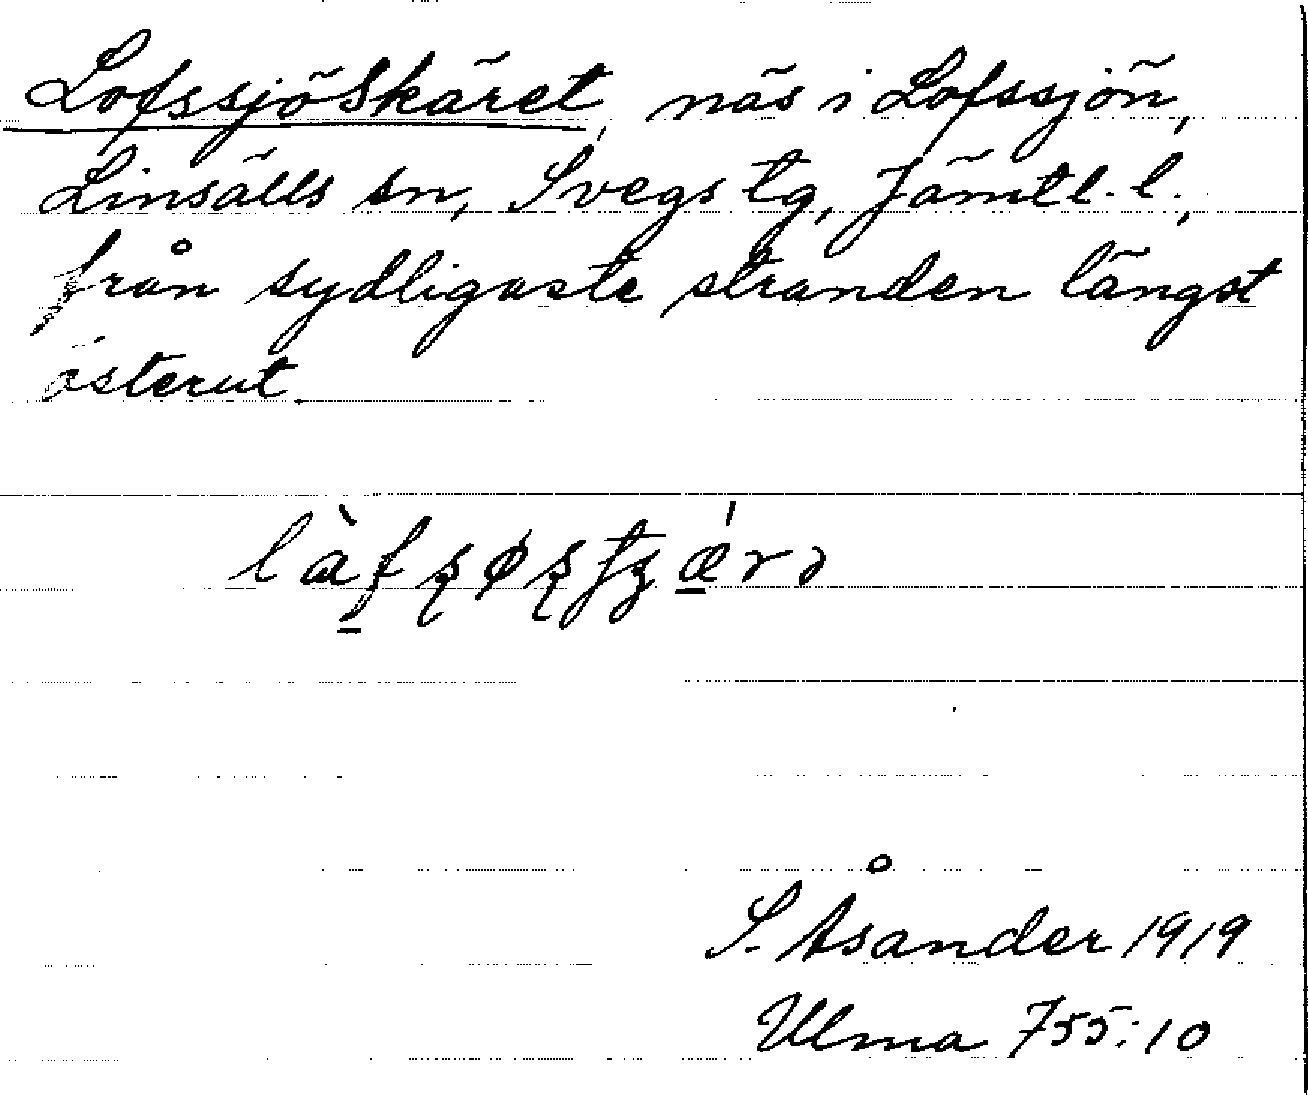 Lofssjöskäret, näs i Lofssjön,
Linsälls sn, Svegs tg, Jämtl. l.,
från sydligaste stranden längst
österut.
S. Åsander 1919
Ulma 755:10